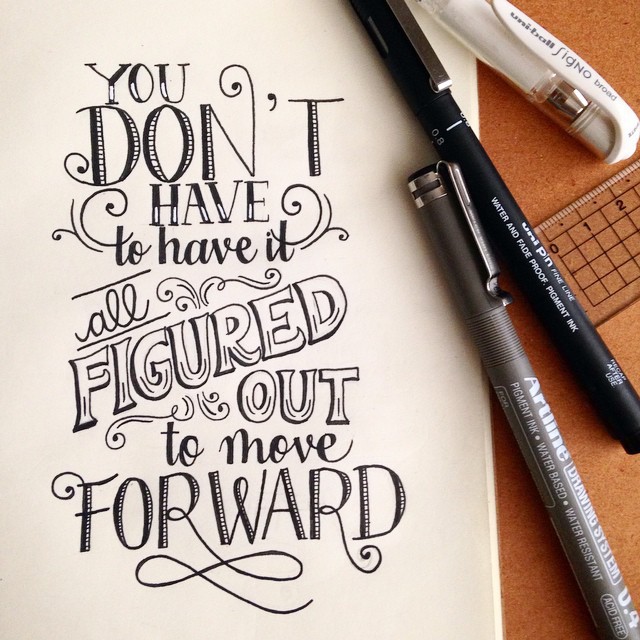 YOU
DON'T
HAVE
to have it
all
FIGURED
OUT
to move
FORWARD
uni-ball SigNO broad
0.8
uni PIN FINE LINE
WATER AND FADE PROOF, PIGMENT INK
RECAP AFTER USE
Artline DRAWING SYSTEM 0.4
PIGMENT INK • WATER BASED • WATER RESISTANT
ACID FREE
0 1 2